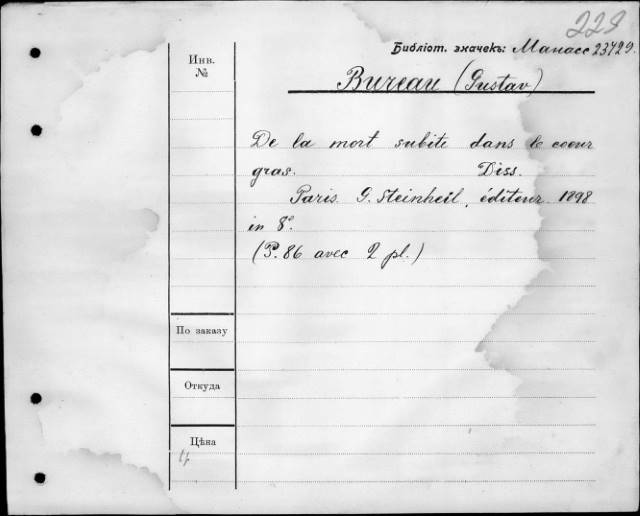 229
Библіот. значекъ: Манасс 23729.
Инв. №
Bureau (Gustav)
De la mort subite dans le coeur
gras. Diss.
Paris. G. Steinheil, éditeur. 1898
in 8°.
(P. 86 avec 2 pl.)
По заказу
Откуда
Цѣна